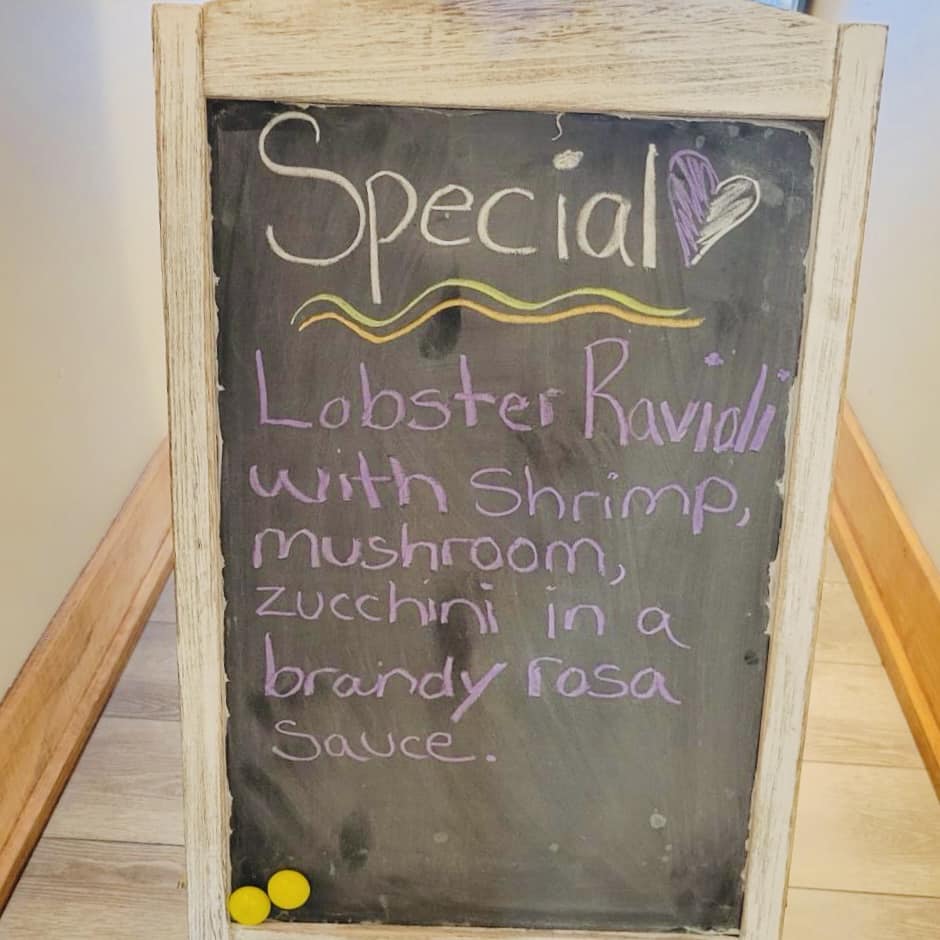 Special
Lobster Ravioli
with Shrimp,
mushroom,
zucchini in a
brandy rosa
Sauce.